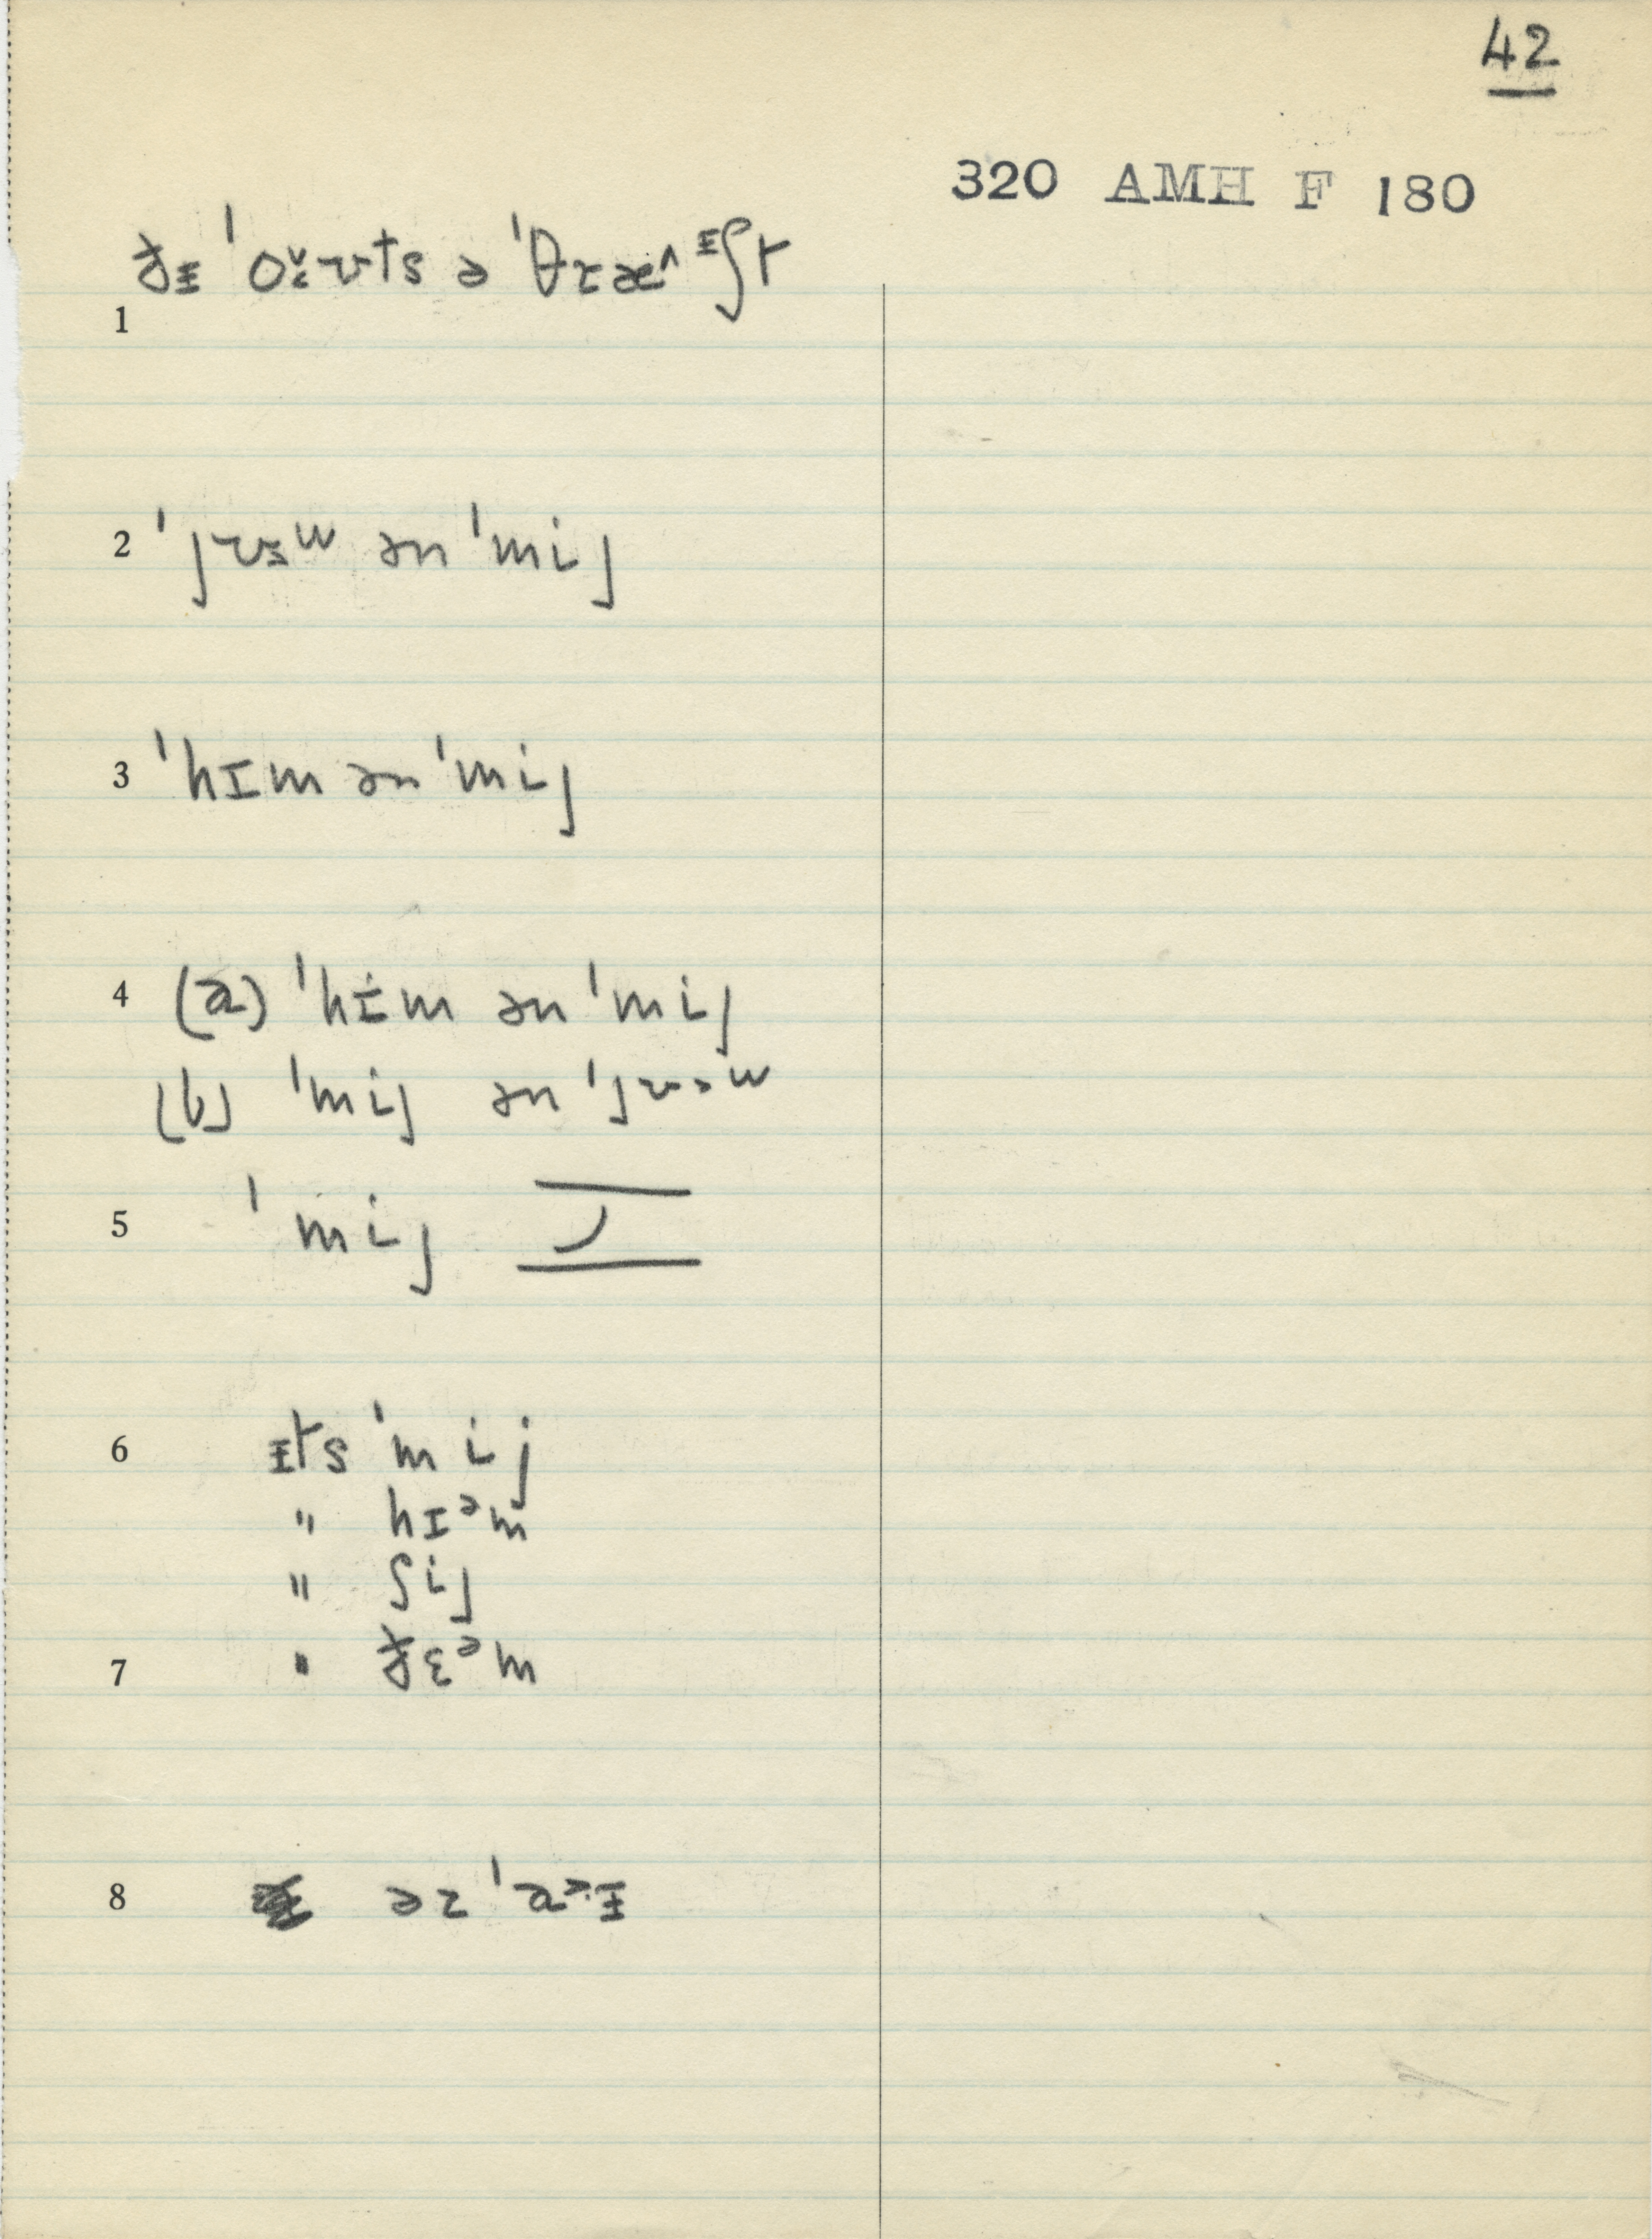 42
320 AMH F 180
ðᵻ ˈoʊts ə ˈθɾæ^ᵻʃt
1
2 ˈjʊw ən ˈmij
3 ˈhɪm ən ˈmij
4 (a) ˈhɪm ən ˈmij
(b) ˈmij ən ˈjʊw
5 ˈmij
6 ᵻts ˈmij
" hɪᵊm
" ʃij
7 " ðɛᵊm
8 əz ˈaᵻ